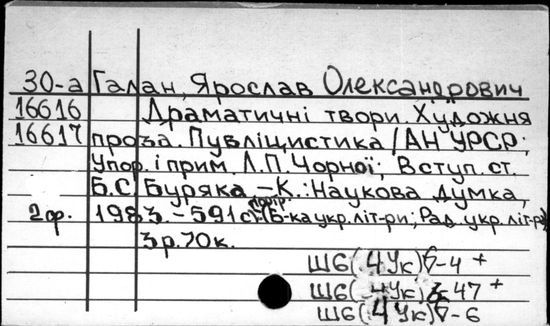 30-а Галан, Ярослав Олександрович
16616 Драматичні твори. Художня
16617 проза. Публіцистика / АН УРСР;
Упор. і прим. Л.П. Чорної; Вступ. ст.
Б.С. Буряка. – К.: Наукова думка,
2ф. 1983. – 591с., портр. – (Б-ка укр. літ-ри; Рад. укр. літ-ра)
3р.70к.
Ш6(4Ук) -4 +
Ш6(4Ук) 47 +
Ш6(4Ук) -6